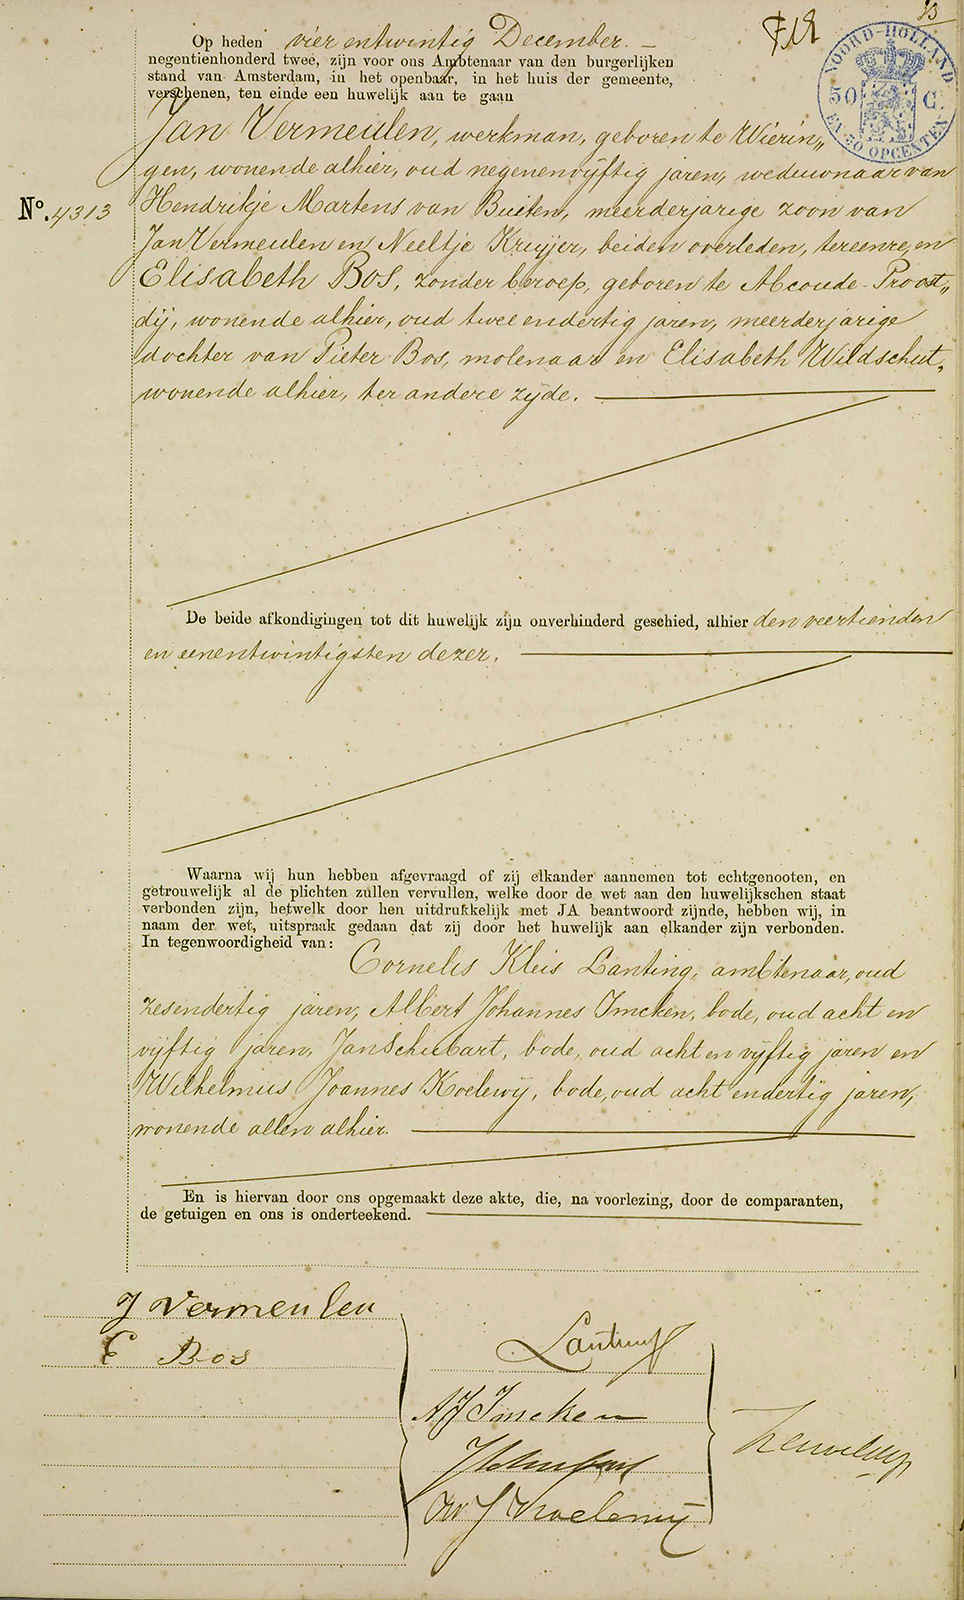 13
Op heden vier entwintig December.
negentienhonderd twee, zijn voor ons Ambtenaar van den burgerlijken
stand van Amsterdam, in het openbaar, in het huis der gemeente,
verschenen, ten einde een huwelijk aan te gaan
NOORD-HOLLAND
50 C.
EN 50 OPCENTEN
Jan Vermeulen, werkman, geboren te Wierin„
gen, wonende alhier, oud negenenvijftig jaren, weduwnaar van
No. 4313
Hendrikje Martens van Buiten, meerderjarige zoon van
Jan Vermeulen en Neeltje Kruijer, beiden overleden, ter eenre, en
Elisabeth Bos, zonder beroep, geboren te Abcoude-Proost„
dij, wonende alhier, oud twee endertig jaren, meerderjarige
dochter van Pieter Bos, molenaar en Elisabeth Wildschut,
wonende alhier, ter andere zijde.
De beide afkondigingen tot dit huwelijk zijn onverhinderd geschied, alhier den veertienden
en eenentwintigsten dezer.
Waarna wij hun hebben afgevraagd of zij elkander aannemen tot echtgenooten, en
getrouwelijk al de plichten zullen vervullen, welke door de wet aan den huwelijkschen staat
verbonden zijn, hetwelk door hen uitdrukkelijk met JA beantwoord zijnde, hebben wij, in
naam der wet, uitspraak gedaan dat zij door het huwelijk aan elkander zijn verbonden.
In tegenwoordigheid van:
Cornelis Kleis Lanting, ambtenaar, oud
zesendertig jaren, Albert Johannes Imcken, bode, oud acht en
vijftig jaren, Jan Schubart, bode, oud acht en vijftig jaren en
Wilhelmus Joannes Koelewij, bode, oud acht endertig jaren,
wonende allen alhier.
En is hiervan door ons opgemaakt deze akte, die, na voorlezing, door de comparanten,
de getuigen en ons is onderteekend.
J Vermeulen
E Bos
Lanting
AJ Imcken
W J Koelewij